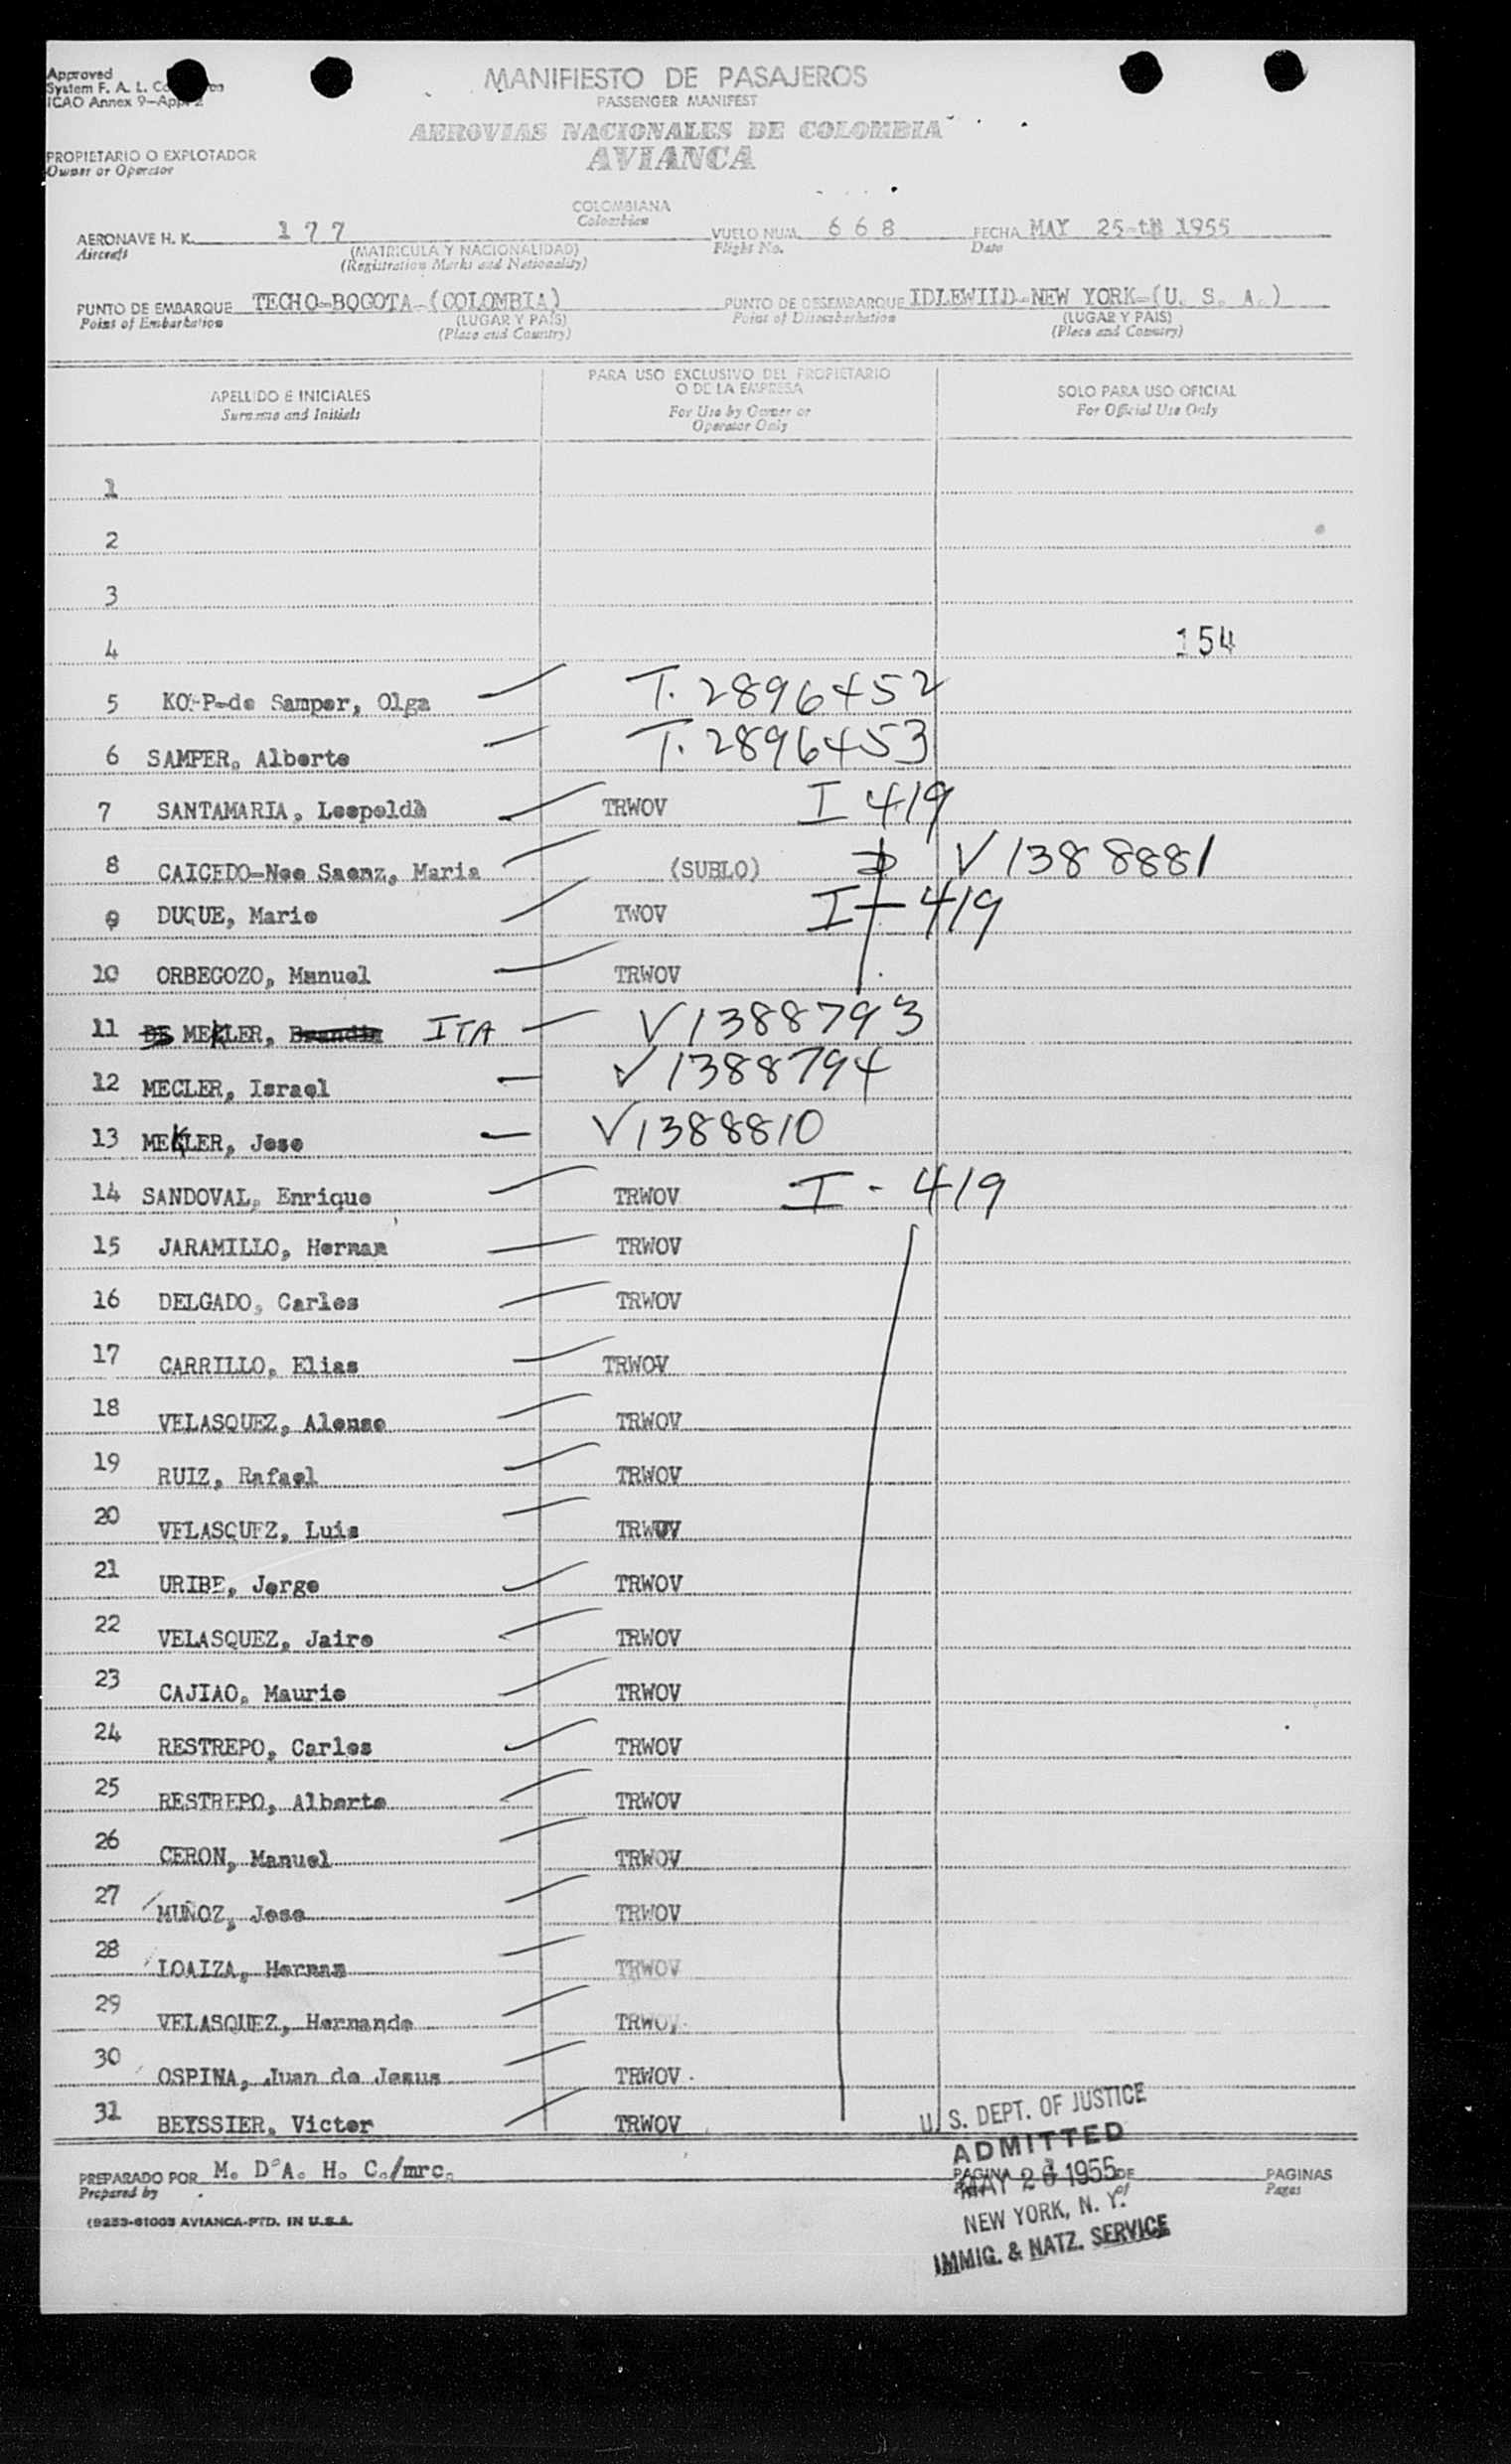 Approved
System F. A. L.
ICAO Annex 9-App. 2
MANIFIESTO DE PASAJEROS
PASSENGER MANIFEST
AEROVIAS NACIONALES DE COLOMBIA
AVIANCA
PROPIETARIO O EXPLOTADOR
Owner or Operator
COLOMBIANA
Colombian
AERONAVE H. K. 177 VUELO NUM. 668 FECHA MAY 25-th 1955
Aircraft (MATRICULA Y NACIONALIDAD) Flight No. Date
(Registration Marks and Nationality)
PUNTO DE EMBARQUE TECHO-BOGOTA-(COLOMBIA) PUNTO DE DESEMBARQUE IDLEWILD-NEW YORK-(U. S. A.)
Point of Embarkation (LUGAR Y PAIS) Point of Disembarkation (LUGAR Y PAIS)
(Place and Country) (Place and Country)
APELLIDO E INICIALES PARA USO EXCLUSIVO DEL PROPIETARIO O DE LA EMPRESA SOLO PARA USO OFICIAL
Surname and Initials For Use by Owner or Operator Only For Official Use Only
1
2
3
4 154
5 KOPP-de Samper, Olga T. 2896452
6 SAMPER, Alberto T. 2896453
7 SANTAMARIA, Leopoldo TRWOV I 419
8 CAICEDO-Nee Saenz, Maria (SUBLO) V 1388881
9 DUQUE, Mario TWOV I - 419
10 ORBEGOZO, Manuel TRWOV
11 DE MEKLER, Brandla ITA V1388793
12 MECLER, Israel V1388794
13 MEKLER, Jose V1388810
14 SANDOVAL, Enrique TRWOV I - 419
15 JARAMILLO, Hernan TRWOV
16 DELGADO, Carlos TRWOV
17 CARRILLO, Elias TRWOV
18 VELASQUEZ, Alonso TRWOV
19 RUIZ, Rafael TRWOV
20 VELASQUEZ, Luis TRWOV
21 URIBE, Jorge TRWOV
22 VELASQUEZ, Jairo TRWOV
23 CAJIAO, Maurio TRWOV
24 RESTREPO, Carlos TRWOV
25 RESTREPO, Alberto TRWOV
26 CERON, Manuel TRWOV
27 MUÑOZ, Jose TRWOV
28 LOAIZA, Hernan TRWOV
29 VELASQUEZ, Hernando TRWOV
30 OSPINA, Juan de Jesus TRWOV
31 BEYSSIER, Victor TRWOV
U. S. DEPT. OF JUSTICE
ADMITTED
PREPARADO POR M. D'A. H. C./mrc. PAGINA DE PAGINAS
Prepared by of Pages
MAY 26 1955
NEW YORK, N. Y.
IMMIG. & NATZ. SERVICE
(9253-61003 AVIANCA-PTD. IN U.S.A.